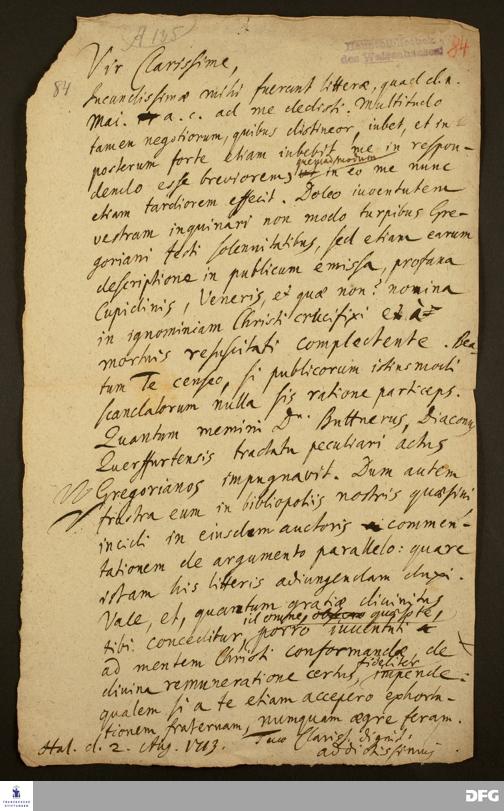 A 185
Hauptbibliothek
des Waisenhauses
84
84
Vir Clarissime,
Iucundissimæ mihi fuerunt litteræ, quas d. 12.
Mai. a. c. ad me dedisti. Multitudo
tamen negotiorum, quibus distineor, iubet, et in
posterum forte etiam iubebit me in respon-
dendo esse breviorem, quemadmodum in eo me nunc
etiam tardiorem effecit. Doleo iuventutem
vestram inquinari non modo turpibus Gre-
goriani festi solennitatibus, sed etiam earum
descriptione in publicum emissa, profana
Cupidinis, Veneris, et quæ non? nomina
in ignominiam Christi crucifixi et à
mortuis resuscitati complectente. Bea-
tum Te censeo, si publicorum istiusmodi
scandalorum nulla sis ratione particeps.
Quantum memini Dn. Buttnerus, Diaconus
Querffurtensis tractatu peculiari actus
Gregorianos impugnavit. Dum autem
frustra eum in bibliopoliis nostris quæsivi
incidi in eiusdem auctoris commen-
tationem de argumento parallelo: quare
istam his litteris adiungendam duxi.
Vale, et, quantum gratiæ divinitus
tibi conceditur, id omne, quæso te,
porro iuventuti
ad mentem Christi conformandæ, de
divina remuneratione certus, fideliter impende:
qualem si a te etiam accepero exhorta-
tionem fraternam, numquam ægre feram.
Hal. d. 2. Aug. 1713. Tuæ Clariss. dignit.
addictissimus
FRANCKESCHE STIFTUNGEN
DFG